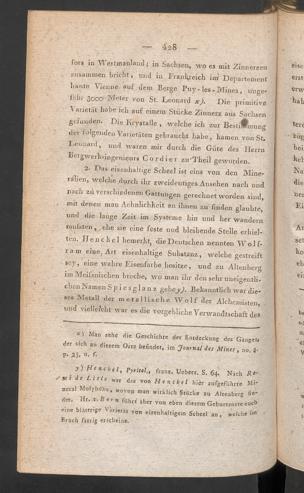 — 428 —
fors in Westmanland; in Sachsen, wo es mit Zinnerzen
zusammen bricht, und in Frankreich im Departement
haute Vienne auf dem Berge Puy-les-Mines, unge-
fähr 3000 Meter von St. Leonard x). Die primitive
Varietät habe ich auf einem Stücke Zinnerz aus Sachsen
gefunden. Die Krystalle, welche ich zur Bestimmung
der folgenden Varietäten gebraucht habe, kamen von St.
Leonard, und waren mir durch die Güte des Herrn
Bergwerksingenieurs Cordier zu Theil geworden.
2. Das eisenhaltige Scheel ist eins von den Mine-
ralien, welche durch ihr zweideutiges Ansehen nach und
nach zu verschiedenen Gattungen gerechnet worden sind,
mit denen man Aehnlichkeit an ihnen zu finden glaubte,
und die lange Zeit im Systeme hin und her wandern
mußten, ehe sie eine feste und bleibende Stelle erhiel-
ten. Henckel bemerkt, die Deutschen nennten Wolf-
ram eine Art eisenhaltige Substanz, welche gestreift
sey, eine wahre Eisenfarbe besitze, und zu Altenberg
im Meißnischen breche, wo man ihr den sehr uneigentli-
chen Namen Spiesglanz gebe y). Bekanntlich war die-
ses Metall der metallische Wolf der Alchemisten,
und vielleicht war es die vorgebliche Verwandtschaft des
x) Man sehe die Geschichte der Entdeckung des Ganges
der sich an diesem Orte befindet, im Journal des Mines, no.
p. 23, u. f.
y) Henckel, Pyritol., franz. Uebers. S. 64. Nach Ro-
mé de Lisle war das von Henckel hier aufgeführte Mi-
neral Molybdän, wovon man wirklich Stücke zu Altenberg fin-
det. Hr. v. Born führt aber von eben diesem Geburtsorte auch
eine blättrige Varietät von eisenhaltigem Scheel an, welche im
Bruch fasrig erscheine.